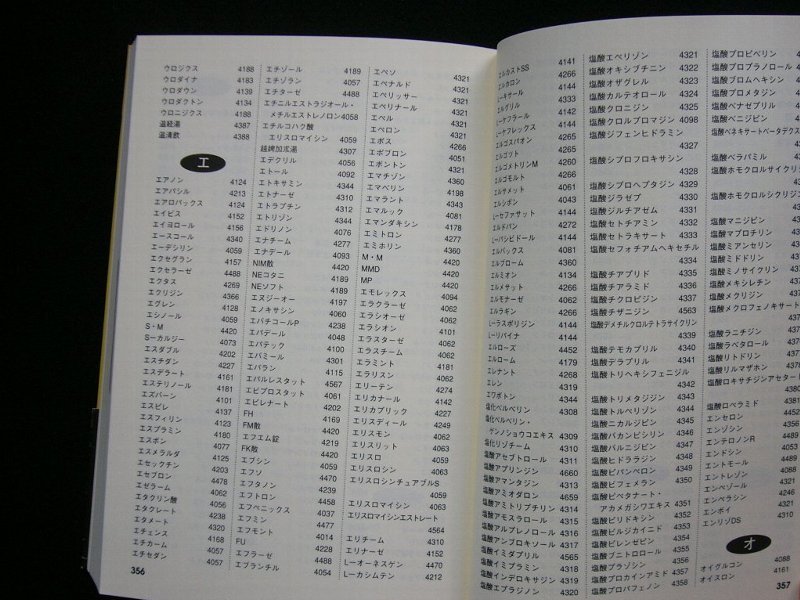 ウロジクス 4188
ウロダイナ 4183
ウロダウン 4139
ウロダクトン 4134
ウロニジクス 4188
温経湯 4387
温清飲 4388
エ
エアノン 4124
エアバシル 4213
エアロバックス 4124
エイビス 4152
エイヨロール 4156
エースコール 4340
エーデシリン 4059
エクセグラン 4157
エクセラーゼ 4488
エクタス 4269
エクリジン 4366
エグレン 4128
エシノール 4059
S・M 4420
S−カルジー 4073
エスダブル 4202
エスチダン 4227
エスデラート 4161
エステリノール 4181
エズバーン 4101
エスピレ 4137
エスフィリン 4123
エスプラミン 4180
エスポン 4077
エスメラルダ 4125
エセックチン 4203
エセブロン 4062
エゼラーム 4058
エタクリン酸 4056
エタクレート 4238
エタメート 4320
エチェンス 4168
エチカーム 4057
エチセダン 4057
356
エチゾール 4189
エチゾラン 4057
エチターゼ 4488
エチニルエストラジオール・
メチルエストレノロン 4058
エチルコハク酸
エリスロマイシン 4059
越婢加朮湯 4307
エデクリル 4056
エトール 4092
エトキサミン 4344
エトナーゼ 4310
エトラプチン 4312
エトリゾン 4344
エドリノン 4076
エナチーム 4277
エナデール 4093
NIM散 4420
NEコタニ 4189
NEソフト 4189
エヌジーオー 4197
エノキサシン 4060
エパチコールP 4238
エパデール 4048
エパテック 4100
エバミール 4301
エバラン 4115
エパルレスタット 4567
エピプロスタット 4061
エピレナート 4202
FH 4169
FM散 4420
エフエム錠 4219
FK散 4420
エブシン 4059
エフソ 4470
エフタノン 4239
エフトロン 4458
エフペニックス 4037
エフミン 4477
エフモント 4014
FU 4228
エフラーゼ 4057
エブランチル 4054
エペソ 4321
エペナルド 4321
エペリッサー 4321
エペリナール 4321
エペル 4321
エペロン 4321
エポス 4266
エポプロン 4321
エポントン 4321
エマチゾン 4360
エマベリン 4198
エマラント 4343
エマルック 4081
エマンダキシン 4178
エミトロン 4277
エミホリン 4360
M・M 4420
MMD 4420
MP 4420
エモレックス 4094
エラクラーゼ 4061
エラシオーゼ 4062
エラシオン 4101
エラスターゼ 4062
エラスチーム 4062
エラミント 4181
エラリスン 4062
エリーテン 4274
エリカナール 4142
エリカプリック 4227
エリスディール 4249
エリスモン 4062
エリスリット 4063
エリスロ 4059
エリスロシン 4063
エリスロシンチュアブルS
4059
エリスロマイシン 4063
エリスロマイシンエストレート
4564
エリチーム 4310
エリナーゼ 4152
L−オーネスゲン 4470
L−カシムテン 4212
エルカストSS 4141
エルカロン 4266
L−キサール 4144
エルグリル 4333
L−ケナフラール 4142
L−ケフレックス 4142
エルゴスパオン 4265
エルゴット 4265
エルゴメトリンM 4260
エルゴモルト 4266
エルサメット 4061
エルシボン 4043
L−セファサット 4144
エルドパン 4272
L−バシビドール 4144
エルバックス 4081
エルプローム 4360
エルミオン 4134
エルメサット 4266
エルモナーゼ 4062
エルラギン 4266
L−ラスポリジン 4144
L−リバイナ 4144
エルローズ 4452
エルローム 4179
エレナント 4268
エレン 4319
エワポトン 4344
塩化ベルベリン 4308
塩化ベルベリン・
ゲンノショウコエキス 4309
塩化リゾチーム 4310
塩酸アセブトロール 4311
塩酸アプリンジン 4660
塩酸アマンタジン 4313
塩酸アミオダロン 4659
塩酸アミトリプチリン 4314
塩酸アモスラロール 4315
塩酸アルプレノロール 4316
塩酸アンブロキソール 4317
塩酸イミダプリル 4565
塩酸イミプラミン 4318
塩酸インデロキサジン 4319
塩酸エプラジノン 4320
塩酸エペリゾン 4321
塩酸オキシブチニン 4322
塩酸オザグレル 4323
塩酸カルテオロール 4324
塩酸クロニジン 4325
塩酸クロルプロマジン 4098
塩酸ジフェンヒドラミン
4327
塩酸シプロフロキサシン
4328
塩酸シプロヘプタジン 4329
塩酸ジラゼプ 4330
塩酸ジルチアゼム 4331
塩酸セトチアミン 4332
塩酸セトラキサート 4333
塩酸セフォチアムヘキセチル
4334
塩酸チアプリド 4335
塩酸チアラミド 4336
塩酸チクロピジン 4337
塩酸チザニジン 4563
塩酸デメチルクロルテトラサイクリン
4339
塩酸テモカプリル 4340
塩酸デラプリル 4341
塩酸トリヘキシフェニジル
4342
塩酸トリメタジジン 4343
塩酸トルペリゾン 4344
塩酸ニカルジピン 4345
塩酸バカンピシリン 4346
塩酸バルニジピン 4347
塩酸ヒドララジン 4348
塩酸ピパンペロン 4349
塩酸ビフェメラン 4350
塩酸ピペタナート・
アカメガシワエキス 4351
塩酸ピリドキシン 4352
塩酸ピルジカイニド 4353
塩酸ピレンゼピン 4354
塩酸ブニトロロール 4355
塩酸プラゾシン 4356
塩酸プロカインアミド 4357
塩酸プロパフェノン 4358
塩酸プロピベリン
塩酸プロプラノロール
塩酸ブロムヘキシン
塩酸プロメタジン
塩酸ベナゼプリル
塩酸ベニジピン
塩酸ベネキサートベータデクス
塩酸ベラパミル
塩酸ホモクロルサイクリ
塩酸ホモクロルシクリジ
塩酸マニジピン
塩酸マプロチリン
塩酸ミアンセリン
塩酸ミドドリン
塩酸ミノサイクリン
塩酸メキシレチン
塩酸メクリジン
塩酸メクロフェノキサート
塩酸ラニチジン
塩酸ラベタロール
塩酸リトドリン
塩酸リルマザホン
塩酸ロキサチジンアセター
4380
塩酸ロペラミド 4381
エンセロン 4452
エンゾシン
エンテロノンR
エンドシン
エントモール
エントレルー
エンペゾール
エンペラシン
エンボイ 4321
エンリゾDS 4310
オ
オイグルコン 4088
オイスロン 4161
357